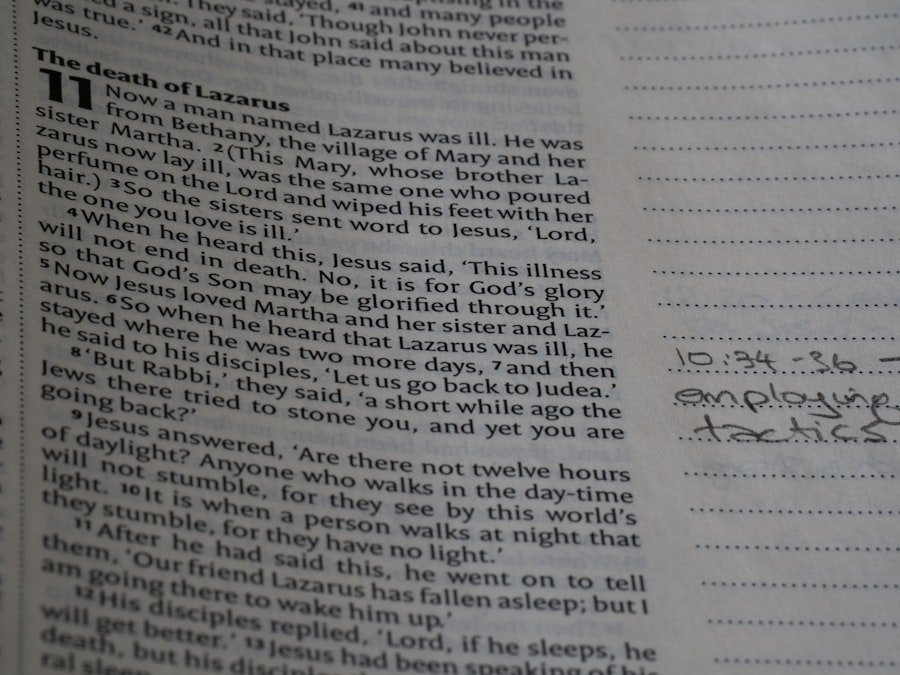 stayed, 41 and many people
They said, 'Though John never per-
a sign, all that John said about this man
was true.' 42 And in that place many believed in
Jesus.
The death of Lazarus
11 Now a man named Lazarus was ill. He was
from Bethany, the village of Mary and her
sister Martha. 2 (This Mary, whose brother La-
zarus now lay ill, was the same one who poured
perfume on the Lord and wiped his feet with her
hair.) 3 So the sisters sent word to Jesus, 'Lord,
the one you love is ill.'
4 When he heard this, Jesus said, 'This illness
will not end in death. No, it is for God's glory
so that God's Son may be glorified through it.'
5 Now Jesus loved Martha and her sister and Laz-
arus. 6 So when he heard that Lazarus was ill, he
stayed where he was two more days, 7 and then
he said to his disciples, 'Let us go back to Judea.'
8 'But Rabbi,' they said, 'a short while ago the
Jews there tried to stone you, and yet you are
going back?'
9 Jesus answered, 'Are there not twelve hours
of daylight? Anyone who walks in the day-time
will not stumble, for they see by this world's
light. 10 It is when a person walks at night that
they stumble, for they have no light.'
11 After he had said this, he went on to tell
them, 'Our friend Lazarus has fallen asleep; but I
am going there to wake him up.'
12 His disciples replied, 'Lord, if he sleeps, he
will get better.' 13 Jesus had been speaking of his
death, but his
10:34-36 -
employing
tactics